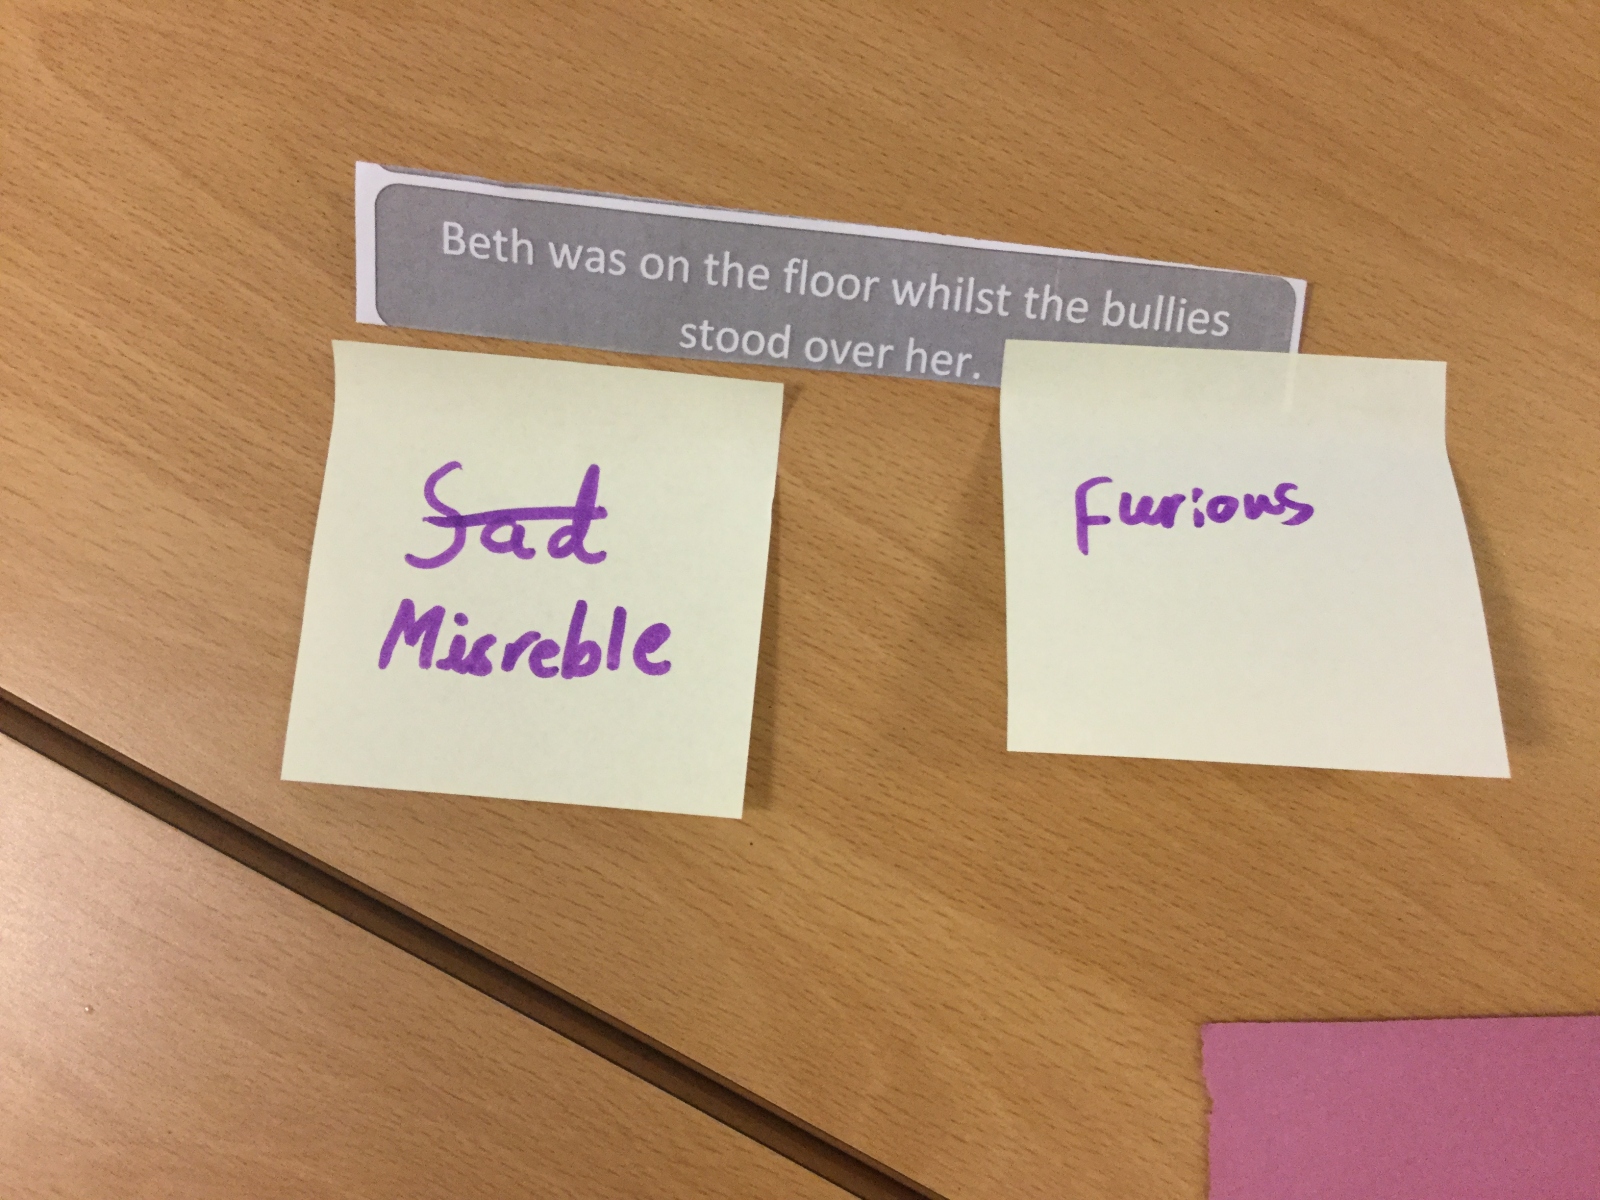 Beth was on the floor whilst the bullies
stood over her.
Sad
Misreble
Furious